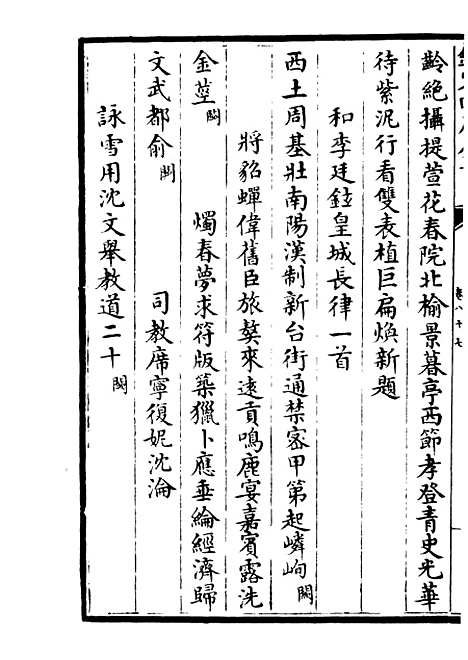 齡絶攝提萱花春院北榆景暮亭西節孝登青史光華
待紫泥行看雙表植巨扁煥新題
和李廷鉉皇城長律一首
西土周基壯南陽漢制新台街通禁宻甲第起嶙峋闕
將貂蟬偉舊臣旅獒來逺貢鳴鹿宴嘉賓露洗
金莖闕 燭春夢求符版築獵卜應垂綸經濟歸
文武都俞闕 司教席寧復妮沈淪
詠雪用沈文舉教道二十闕
卷八十七